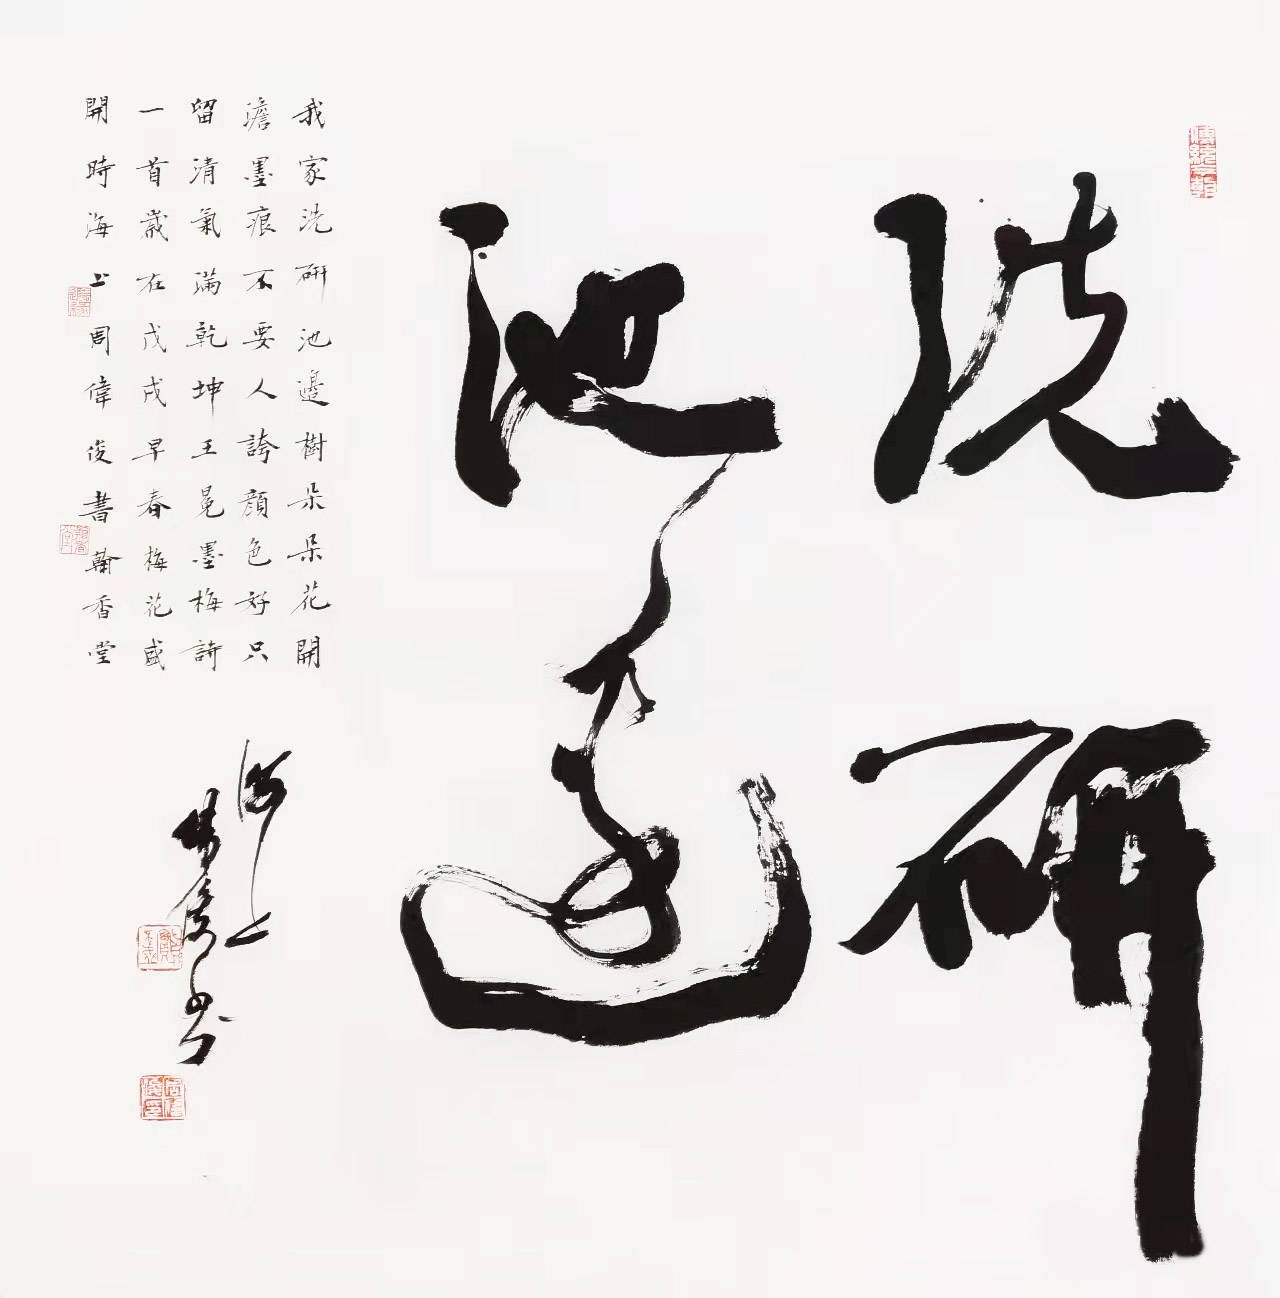 洗研
池邊
我家洗研池邊樹朵朵花開
澹墨痕不要人誇顏色好只
留清氣滿乾坤王冕墨梅詩
一首歲在戊戌早春梅花盛
開時海上周偉俊書翰香堂
海上
偉俊書